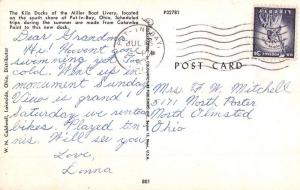 The Kilo Docks of the Miller Boat Livery, located
on the south shore of Put-In-Bay, Ohio. Scheduled
trips during the summer are made from Catawba
Point to this new dock.
P32781
Dear Grandma,
Hi! Haven't gone
swimming yet too
cold. Went up in
monument Sunday
View is grand!
Saturday we rented
bikes. Played ten-
nis. Will see you
Love,
Linna
W. N. Caldwell, Lakeside, Ohio, Distributor
PUT-IN-BAY
JUL
LIBERTY
POST CARD
Mrs F. W. Mitchell
3171 North Porter
North Olmsted
Ohio
801